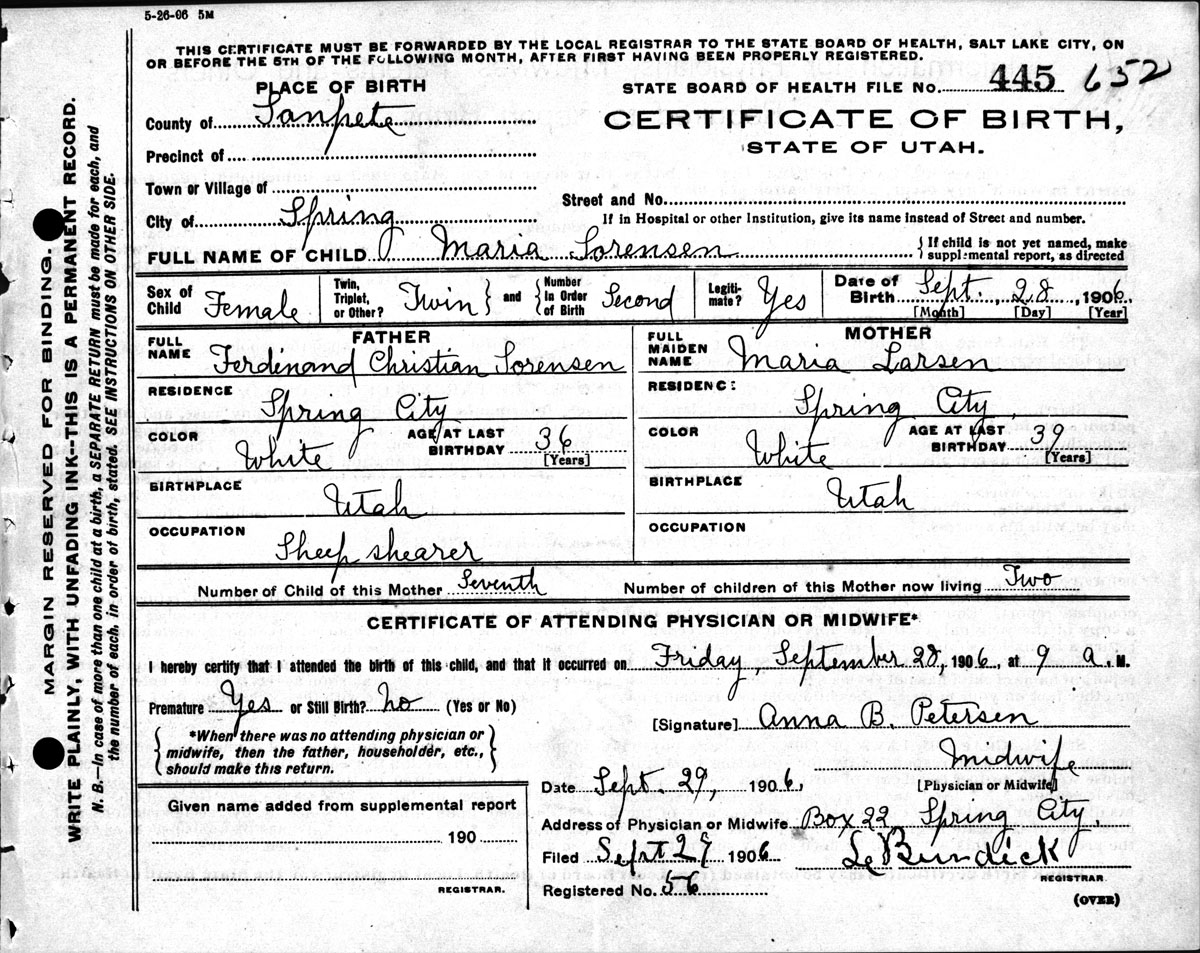 5-26-06 5M
THIS CERTIFICATE MUST BE FORWARDED BY THE LOCAL REGISTRAR TO THE STATE BOARD OF HEALTH, SALT LAKE CITY, ON
OR BEFORE THE 5TH OF THE FOLLOWING MONTH, AFTER FIRST HAVING BEEN PROPERLY REGISTERED.
PLACE OF BIRTH
STATE BOARD OF HEALTH FILE No. 445 652
County of Sanpete
CERTIFICATE OF BIRTH,
STATE OF UTAH.
Precinct of
Town or Village of
Street and No.
City of Spring
If in Hospital or other Institution, give its name instead of Street and number.
FULL NAME OF CHILD Maria Sorensen { If child is not yet named, make
supplemental report, as directed
Sex of Child Female
Twin, Triplet, or Other? Twin } and { Number in Order of Birth Second
Legitimate? Yes
Date of Birth Sept. 28, 1906.
[Month] [Day] [Year]
FATHER
FULL NAME Ferdinand Christian Sorensen
RESIDENCE Spring City
COLOR White AGE AT LAST BIRTHDAY 36
[Years]
BIRTHPLACE Utah
OCCUPATION Sheep shearer
MOTHER
FULL MAIDEN NAME Maria Larsen
RESIDENCE Spring City,
COLOR White AGE AT LAST BIRTHDAY 39
[Years]
BIRTHPLACE Utah
OCCUPATION
Number of Child of this Mother Seventh Number of children of this Mother now living Two
CERTIFICATE OF ATTENDING PHYSICIAN OR MIDWIFE*
I hereby certify that I attended the birth of this child, and that it occurred on Friday, September 28, 1906, at 9 a. M.
Premature Yes or Still Birth? no (Yes or No)
[Signature] Anna B. Petersen
{ *When there was no attending physician or
midwife, then the father, householder, etc.,
should make this return. }
Midwife
Date Sept. 29, 1906, [Physician or Midwife]
Given name added from supplemental report
190
REGISTRAR.
Address of Physician or Midwife Box 22 Spring City,
Filed Sept 29 1906 Le Burdick
REGISTRAR
Registered No. 56
(OVER)
MARGIN RESERVED FOR BINDING.
WRITE PLAINLY, WITH UNFADING INK--THIS IS A PERMANENT RECORD.
N. B.—In case of more than one child at a birth, a SEPARATE RETURN must be made for each, and
the number of each, in order of birth, stated. SEE INSTRUCTIONS ON OTHER SIDE.